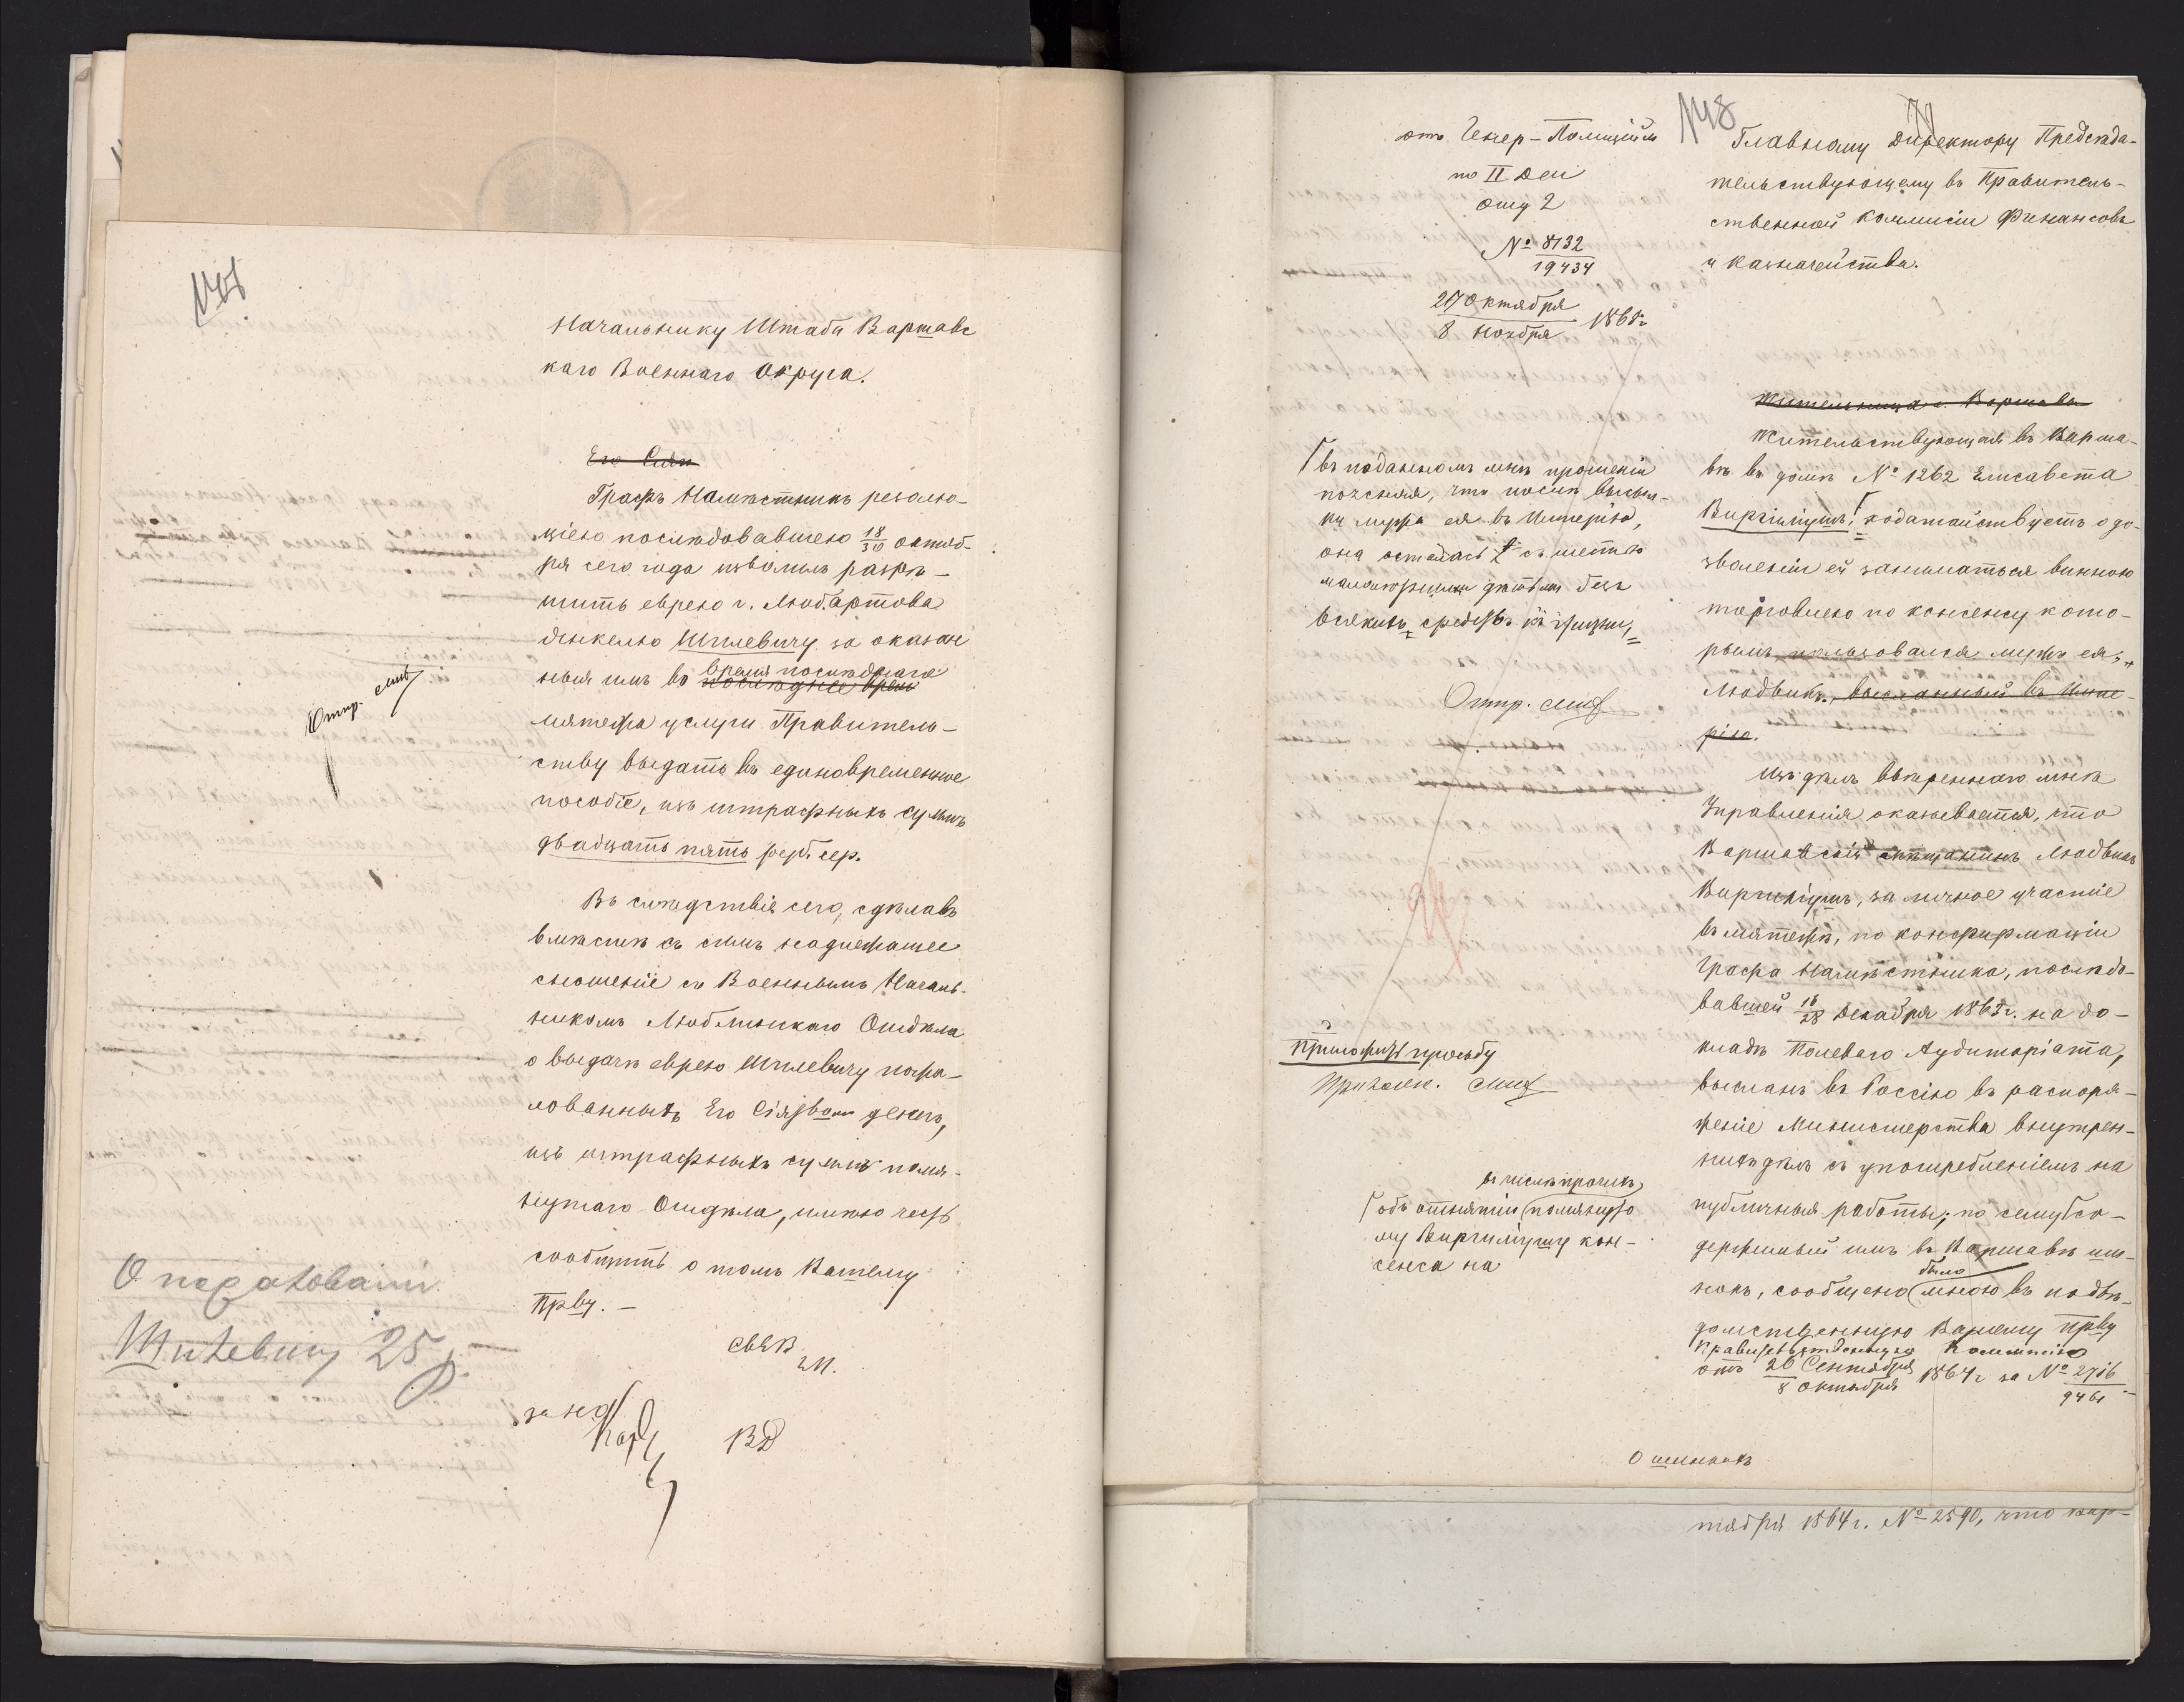 Начальнику Штаба Варшавс
каго Военнаго Округа.
Его Сіят
Графъ Намѣстникъ резолю-
ціею послѣдовавшею 18/30 октяб-
ря сего года изволилъ разрѣ-
шить еврею г. Любартова
Шлевичу за оказан
ныя имъ во время послѣдняго
послѣднее время
мятежа услуги Правитель-
ству выдать въ единовременное
пособіе, изъ штрафныхъ суммъ
двадцать пять руб. сер.
Въ слѣдствіе сего, сдѣлавъ
вмѣстѣ съ симъ надлежащее
сношеніе съ Военнымъ Началь-
никомъ Люблинскаго Отдѣла
о выдачѣ еврею Шлевичу пожа-
лованныхъ Его Сіятвомъ денегъ,
изъ штрафныхъ суммъ помя-
нутаго Отдѣла, имѣю честь
сообщить о томъ Вашему
Прву. —
Отпр.
О пожалованіи
25 р.
ВД
148
отъ Генер-Полиційм
по II Дел
отд 2
№ 8132
19434
27 Октября
8 Ноября 1865 г
Главному Директору Предсѣда-
тельствующему въ Правитель-
ственной Коммисіи Финансовъ
и Казначейства.
Жительница г. Варшавы
Жительствующая въ Варша-
вѣ въ домѣ № 1262 Елисавета
Виргиліушъ, ходатайствуетъ о до-
зволеніи ей заниматься винною
торговлею по консенсу кото-
рымъ пользовался мужъ ея,
Людвикъ, высланный въ Импе-
рію.
въ поданномъ мнѣ прошеніи
поясняя, что послѣ высыл-
ки мужа ея въ Имперію,
она осталась съ шестью
малолѣтними дѣтьми безъ
всякихъ средствъ къ жизни,
Отпр.
Изъ дѣлъ ввѣреннаго мнѣ
Управленія оказывается, что
Варшавскій мѣщанинъ Людвикъ
Виргиліушъ, за личное участіе
въ мятежѣ, по конфирмаціи
Графа Намѣстника, послѣдо-
вавшей 16/28 Декабря 1863 г. на до-
кладѣ Полеваго Аудиторіата,
высланъ въ Россію въ распоря-
женіе Министерства Внутрен-
нихъ дѣлъ съ употребленіемъ на
публичныя работы; по сему со-
держимый имъ въ Варшавѣ ши-
нокъ, сообщено было мною въ подвѣ-
домственную Вашему Прву
Правительственную Коммисію
отъ 26 Сентября
8 Октября 1864 г за № 2716
9461
приложить просьбу
Прилож.
въ числѣ прочихъ
объ отнятіи помянуто
му Виргиліушу кон-
сенса на
О шинкахъ
тября 1864 г. № 2590, что Вар-